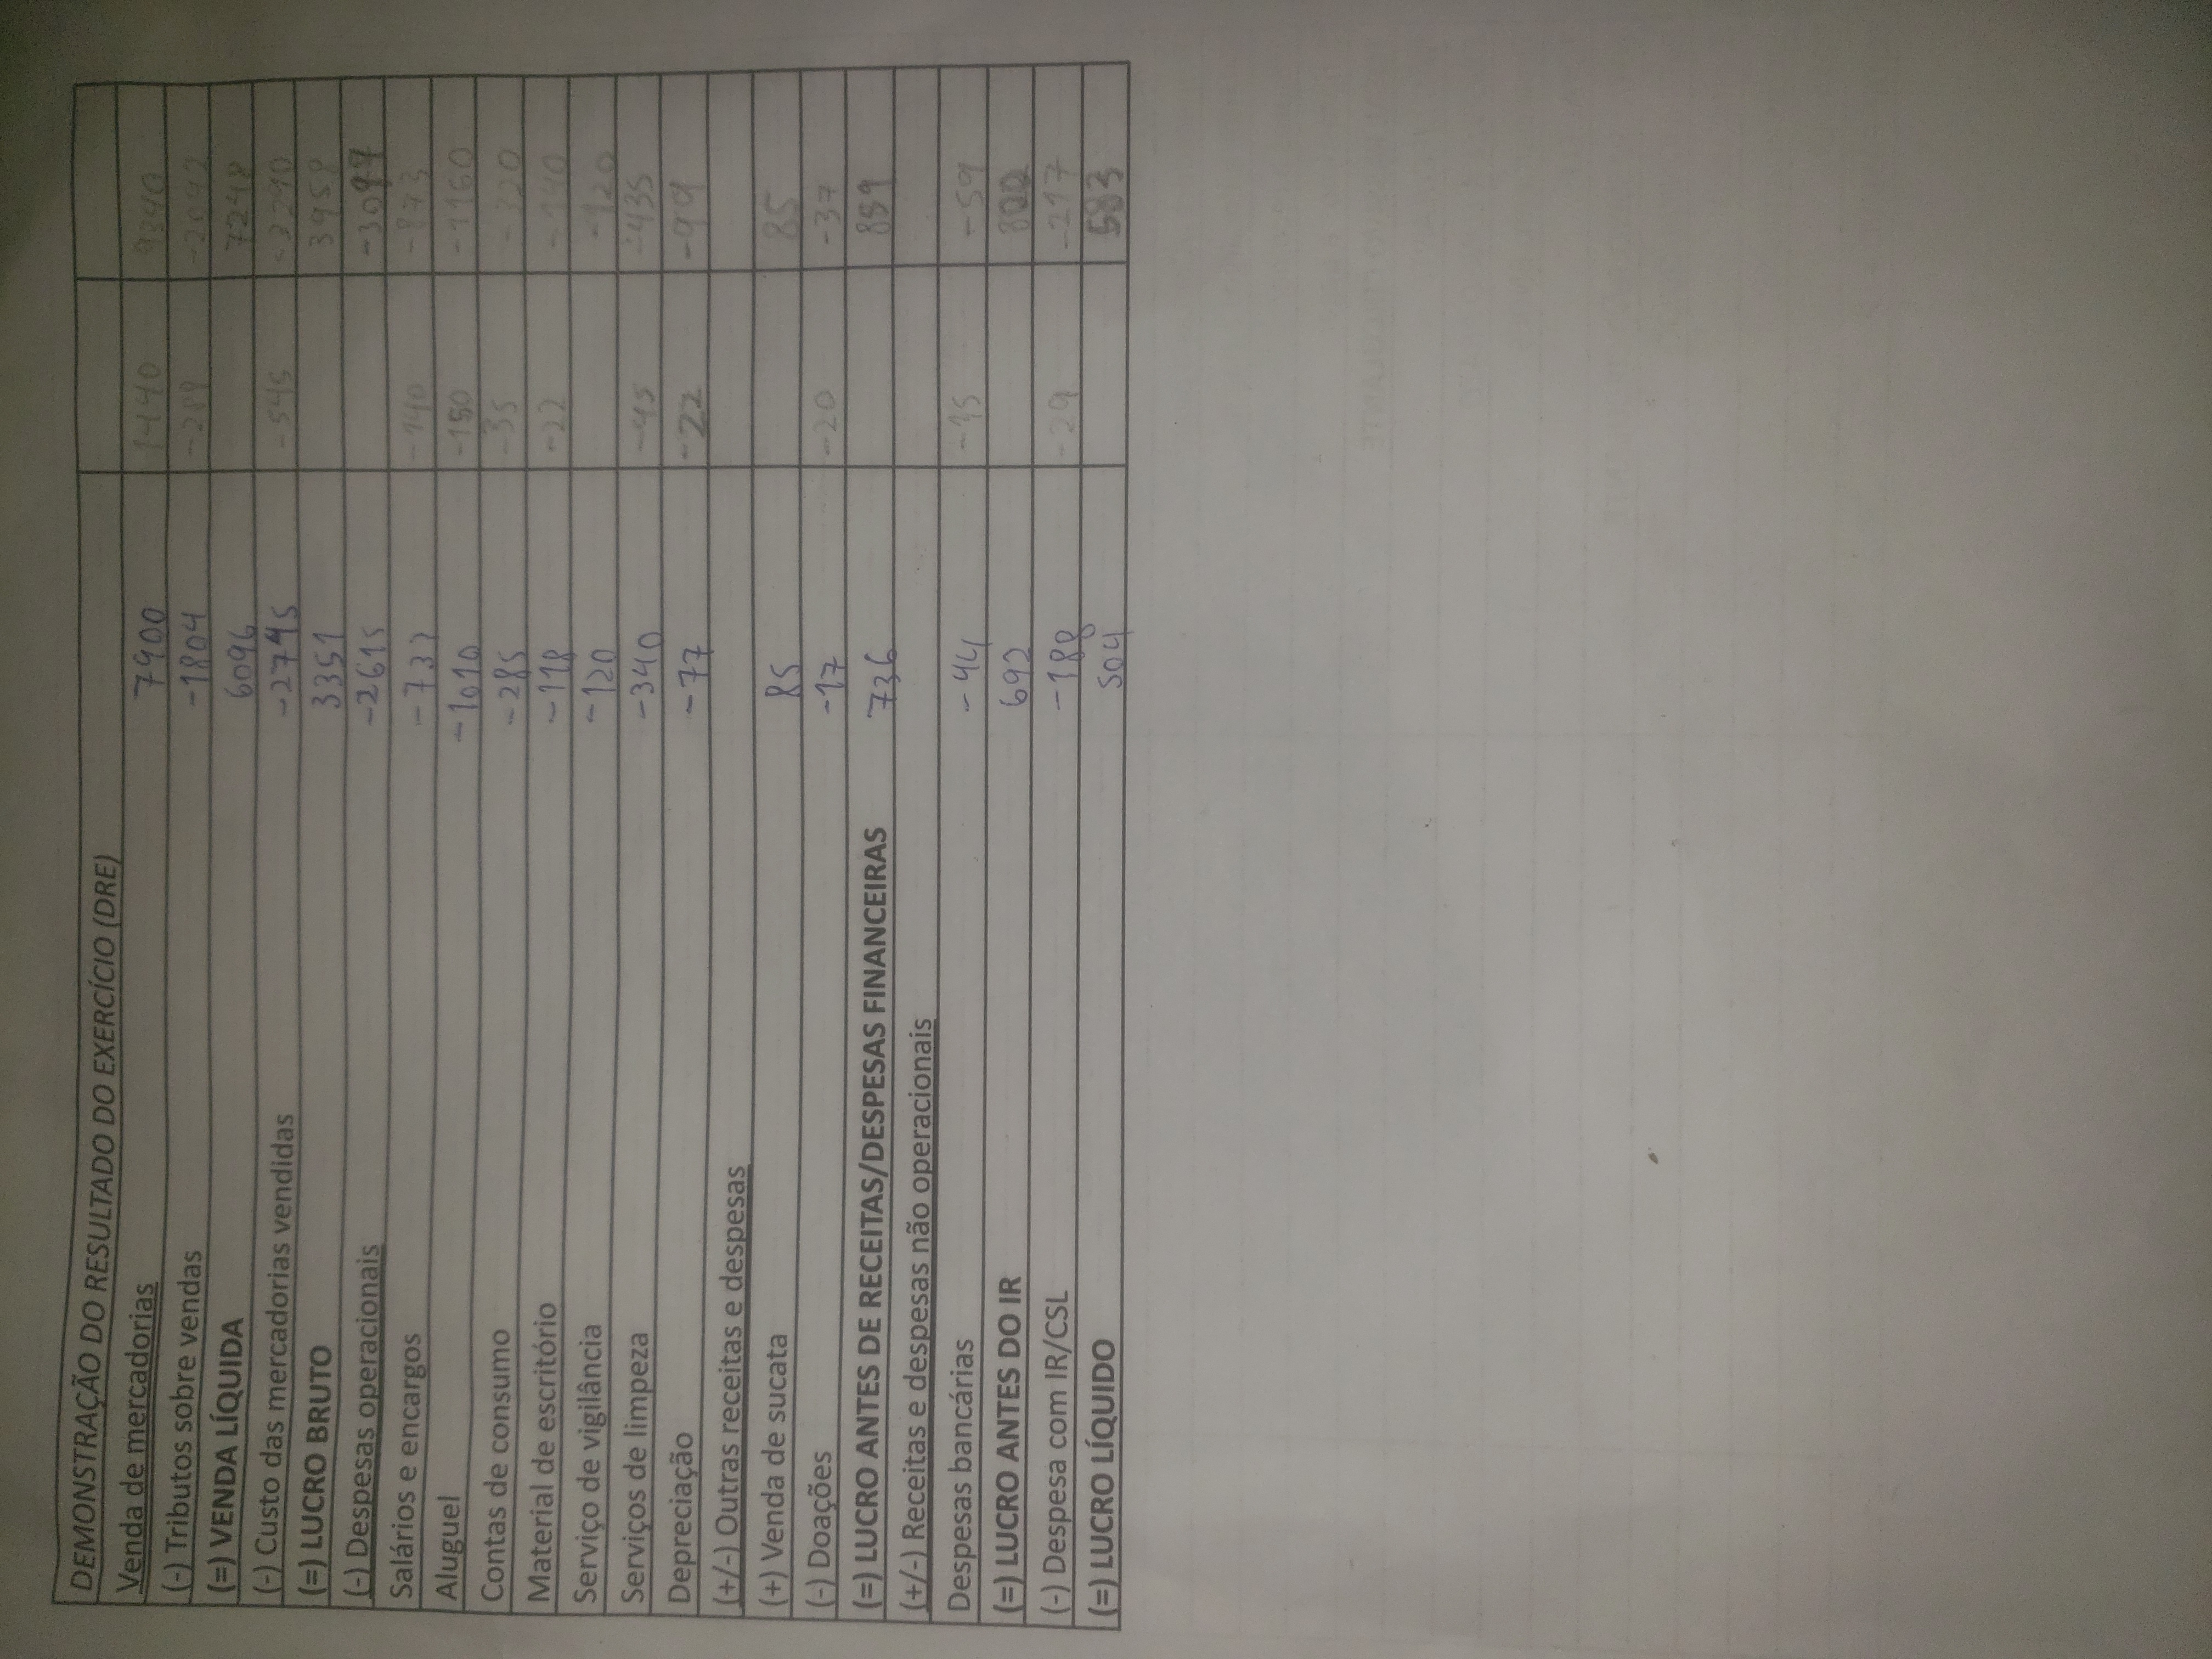 DEMONSTRAÇÃO DO RESULTADO DO EXERCÍCIO (DRE)
Venda de mercadorias 7900 1440 9340
(-) Tributos sobre vendas -1804 -289 -2092
(=) VENDA LÍQUIDA 6096 7248
(-) Custo das mercadorias vendidas -2745 -545 -3290
(=) LUCRO BRUTO 3351 3958
(-) Despesas operacionais -2615
Salários e encargos -733 -140 -873
Aluguel -1010 -150 -1160
Contas de consumo -285 -35 -320
Material de escritório -118 -22 -140
Serviço de vigilância -120 -120
Serviços de limpeza -340 -95 -435
Depreciação -77 -22 -99
(+/-) Outras receitas e despesas
(+) Venda de sucata 85 85
(-) Doações -17 -20 -37
(=) LUCRO ANTES DE RECEITAS/DESPESAS FINANCEIRAS 736 859
(+/-) Receitas e despesas não operacionais
Despesas bancárias -44 -15 -59
(=) LUCRO ANTES DO IR 692 800
(-) Despesa com IR/CSL -188 -29 -217
(=) LUCRO LÍQUIDO 504 583